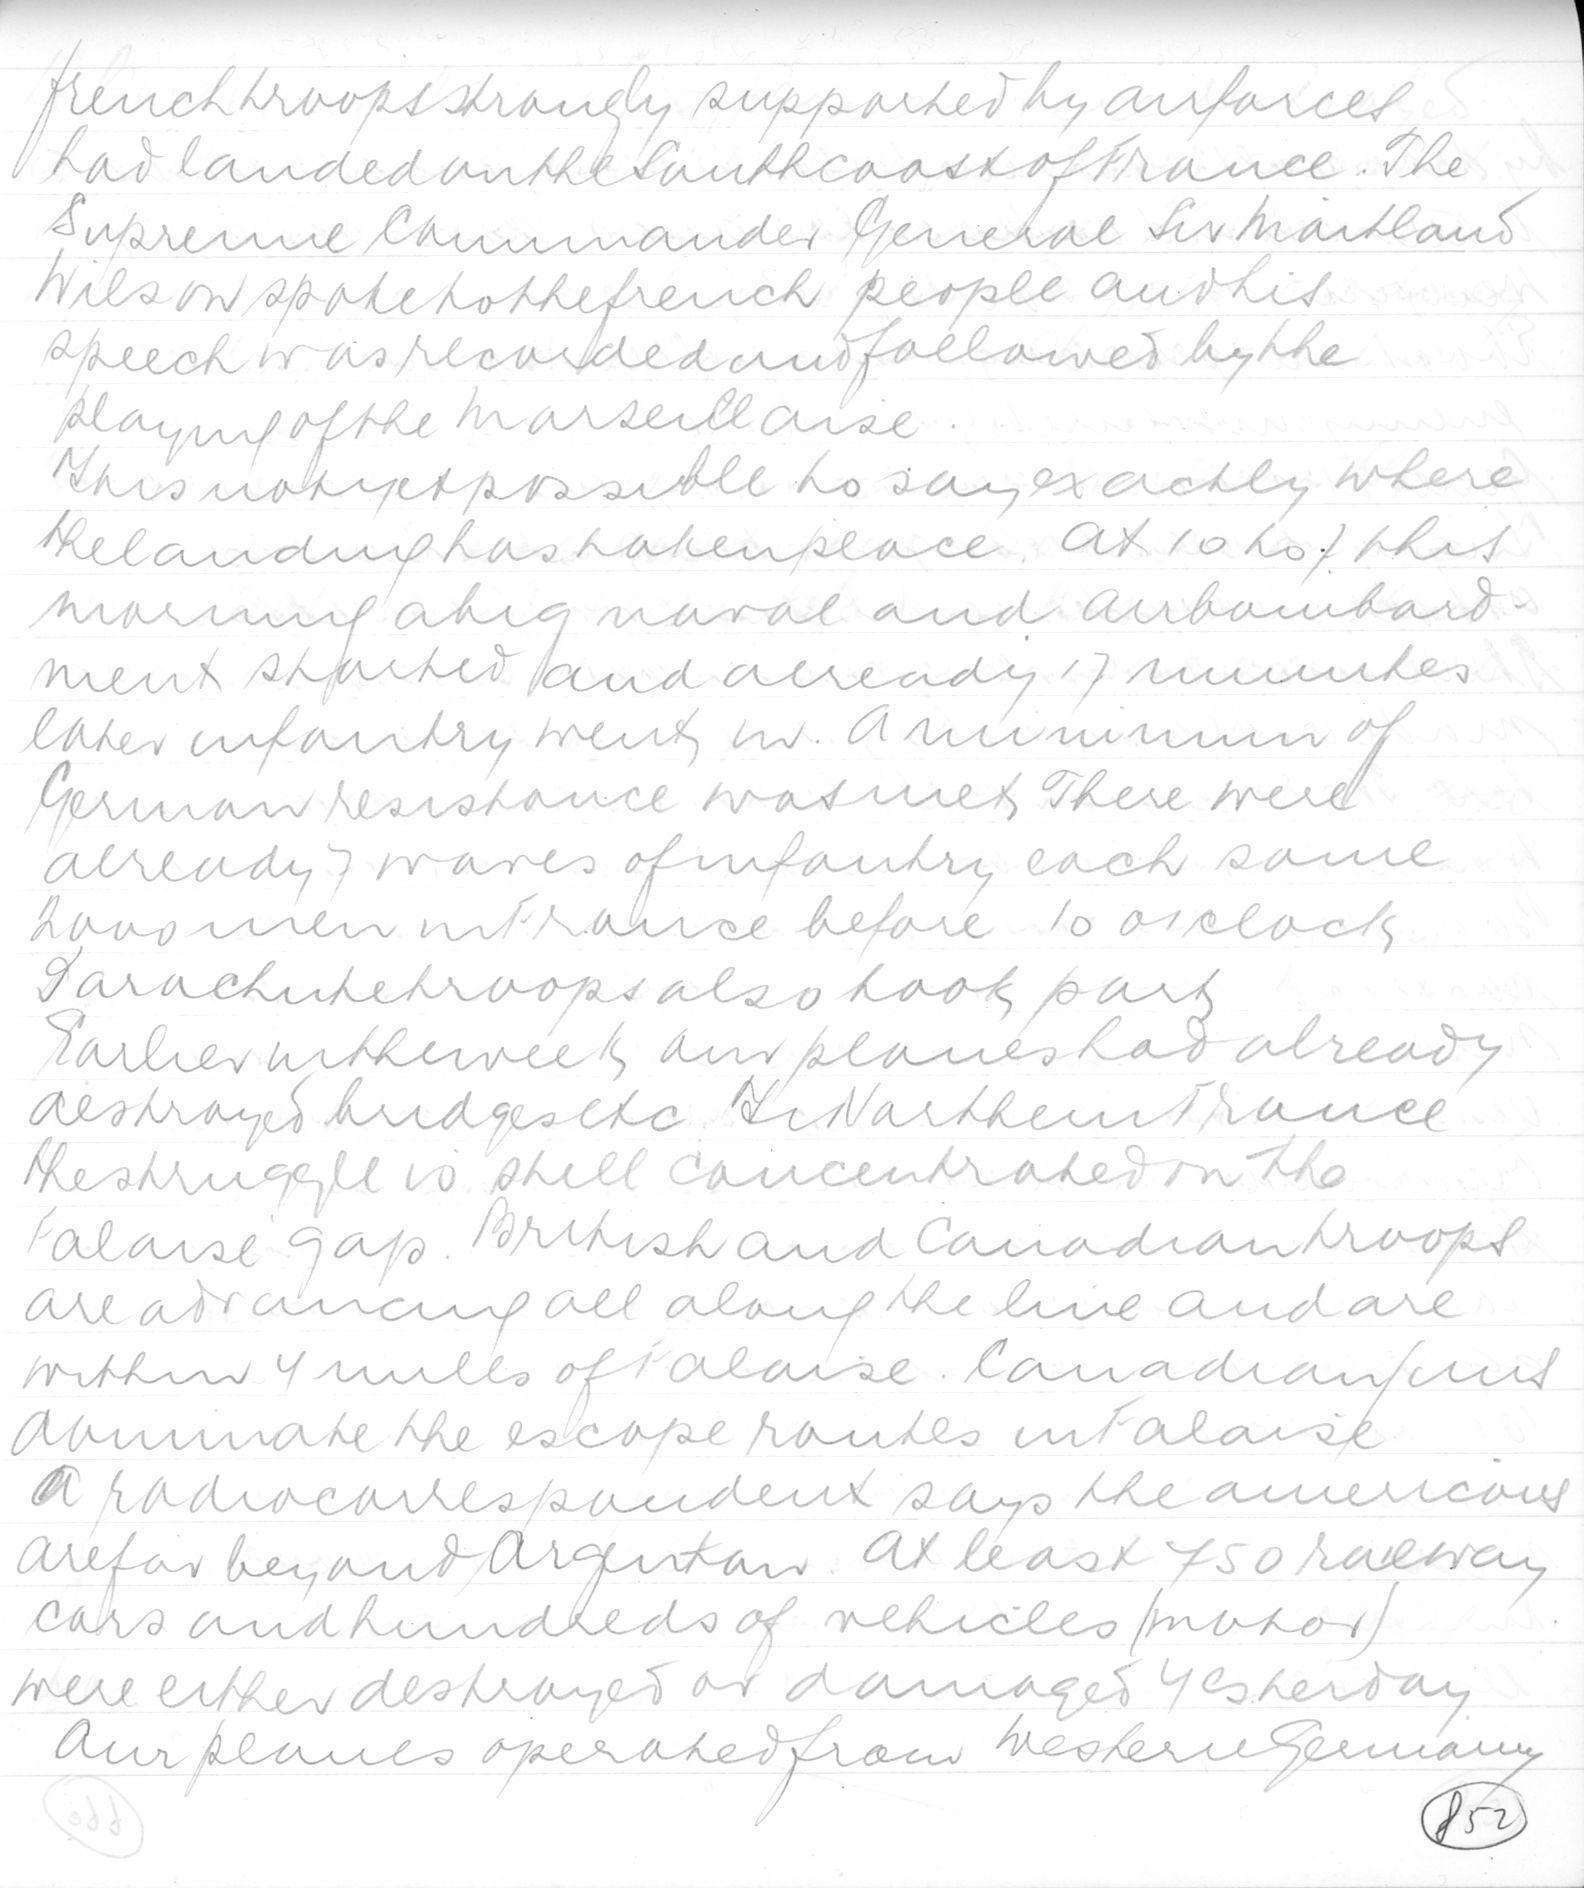 french troops strongly supported by airforces
had landed on the South coast of France. The
Supreme Commander General Sir Maitland
Wilson spoke to the french people and his
speech was recorded and followed by the
playing of the Marseillaise.
It is not yet possible to say exactly where
the landing has taken place. At 10 to 7 this
morning a big naval and airbombard-
ment started and already 17 minutes
later infantry went in. A minimum of
German resistance was met. There were
already 7 waves of infantry each some
2000 men in France before 10 o'clock
Parachute troops also took part
Earlier in the week our planes had already
destroyed bridges etc. In Northern France
the struggle is still concentrated on the
Falaise gap. British and Canadian troops
are advancing all along the line and are
within 4 miles of Falaise. Canadian guns
dominate the escape routes in Falaise
A radiocorrespondent says the americans
are far beyond Argentan. At least 750 railway
cars and hundreds of vehicles (motor)
were either destroyed or damaged yesterday
Our planes operated from Western Germany
852